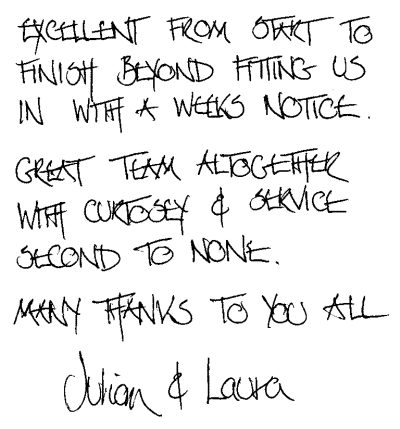 EXCELLENT FROM START TO
FINISH BEYOND FITTING US
IN WITH A WEEKS NOTICE.
GREAT TEAM ALTOGETHER
WITH CURTOSEY & SERVICE
SECOND TO NONE.
MANY THANKS TO YOU ALL
Julian & Laura